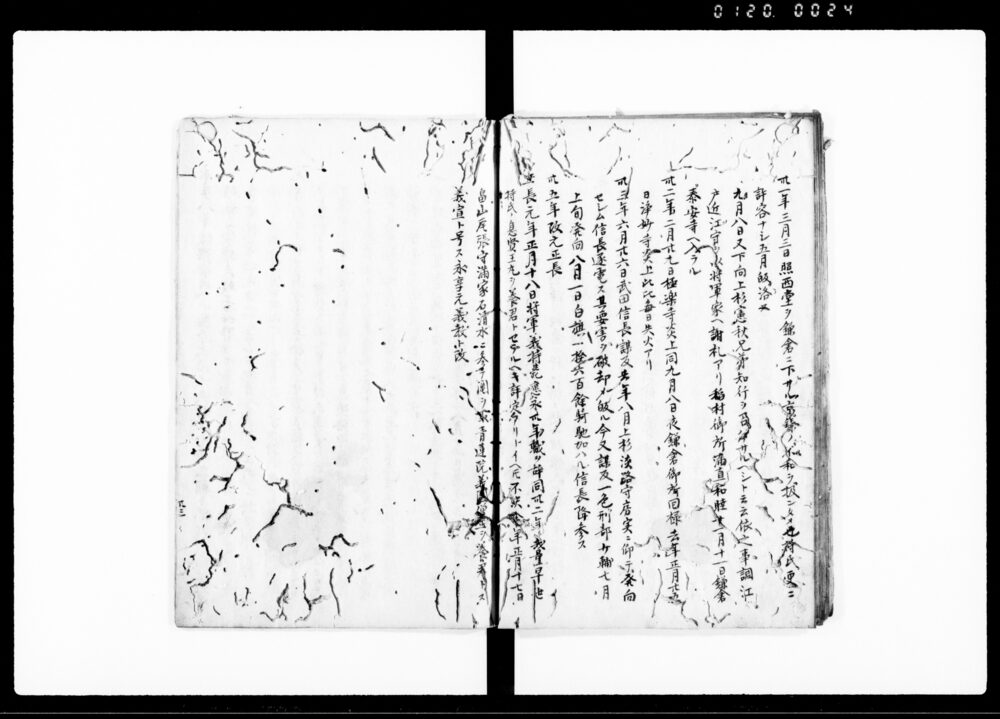 0120. 0024
卅一年三月三日照西堂ヲ鎌倉ニ下サル京鎌ノ不和ヲ扱ンタメ也持氏更ニ
許容ナシ五月飯洛ス
九月八日又下向上杉憲秋兄弟知行ヲ サルヘシト云云依之事調江
戸近江守 将軍家ヘ謝札アリ稲村御所満直和睦十一月十一日鎌倉
泰安寺ヘ入ラル
卅二年二月廿七日極楽寺炎上同九月八日夜鎌倉御所回禄去年正月廿
日浄妙寺炎上此比毎日失火アリ
卅三年六月廿六日武田信長謀反去年八月上杉淡路守房実ニ仰 発向
セシム信長遂電ス其要害ヲ破却メ飯ル今又謀反一色刑部少輔七月
上旬発向八月一日白旗一揆六百餘騎馳加ハル信長降参ス
卅五年改元正長
正長元年正月十八日将軍義持薨應永卅年職ヲ辞同卅二年義量早世
持氏ノ息賢王丸ヲ養君トセラルヘキ評定 トイヘ 不 今年正月十七日
畠山尾張守満家石清水ニ参テ鬮ヲ取青蓮院義圓 ヲ養君トス
義宣ト号ス永享元義教ト改
卅三